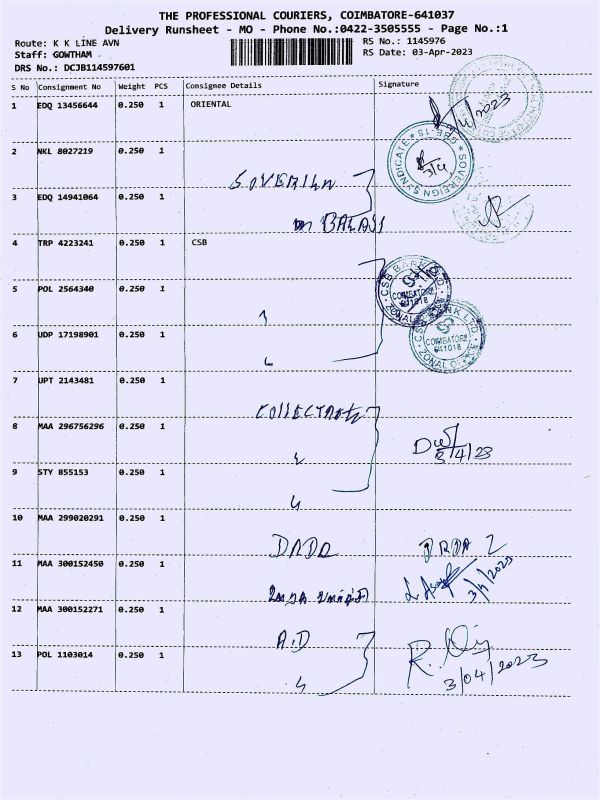 THE PROFESSIONAL COURIERS, COIMBATORE-641037
Delivery Runsheet - MO - Phone No.:0422-3505555 - Page No.:1
Route: K K LINE AVN
RS No.: 1145976
Staff: GOWTHAM
RS Date: 03-Apr-2023
DRS No.: DCJB114597601
S No Consignment No Weight PCS Consignee Details Signature
1 EDQ 13456644 0.250 1 ORIENTAL
2 NKL 8027219 0.250 1
SOVEREIGN SYNDICATE * CBE-15 *
3/4
SOVERIGN
3 EDQ 14941064 0.250 1
BALAJI
4 TRP 4223241 0.250 1 CSB
CSB BANK LTD.
COIMBATORE
641018
5 POL 2564340 0.250 1
CSB BANK LTD.
COIMBATORE
641018
ZONAL
6 UDP 17198901 0.250 1
7 UPT 2143481 0.250 1
8 MAA 296756296 0.250 1
3/4/23
9 STY 855153 0.250 1
10 MAA 299020291 0.250 1
11 MAA 300152450 0.250 1
3/4/2023
12 MAA 300152271 0.250 1
A.D
13 POL 1103014 0.250 1
3/04/2023